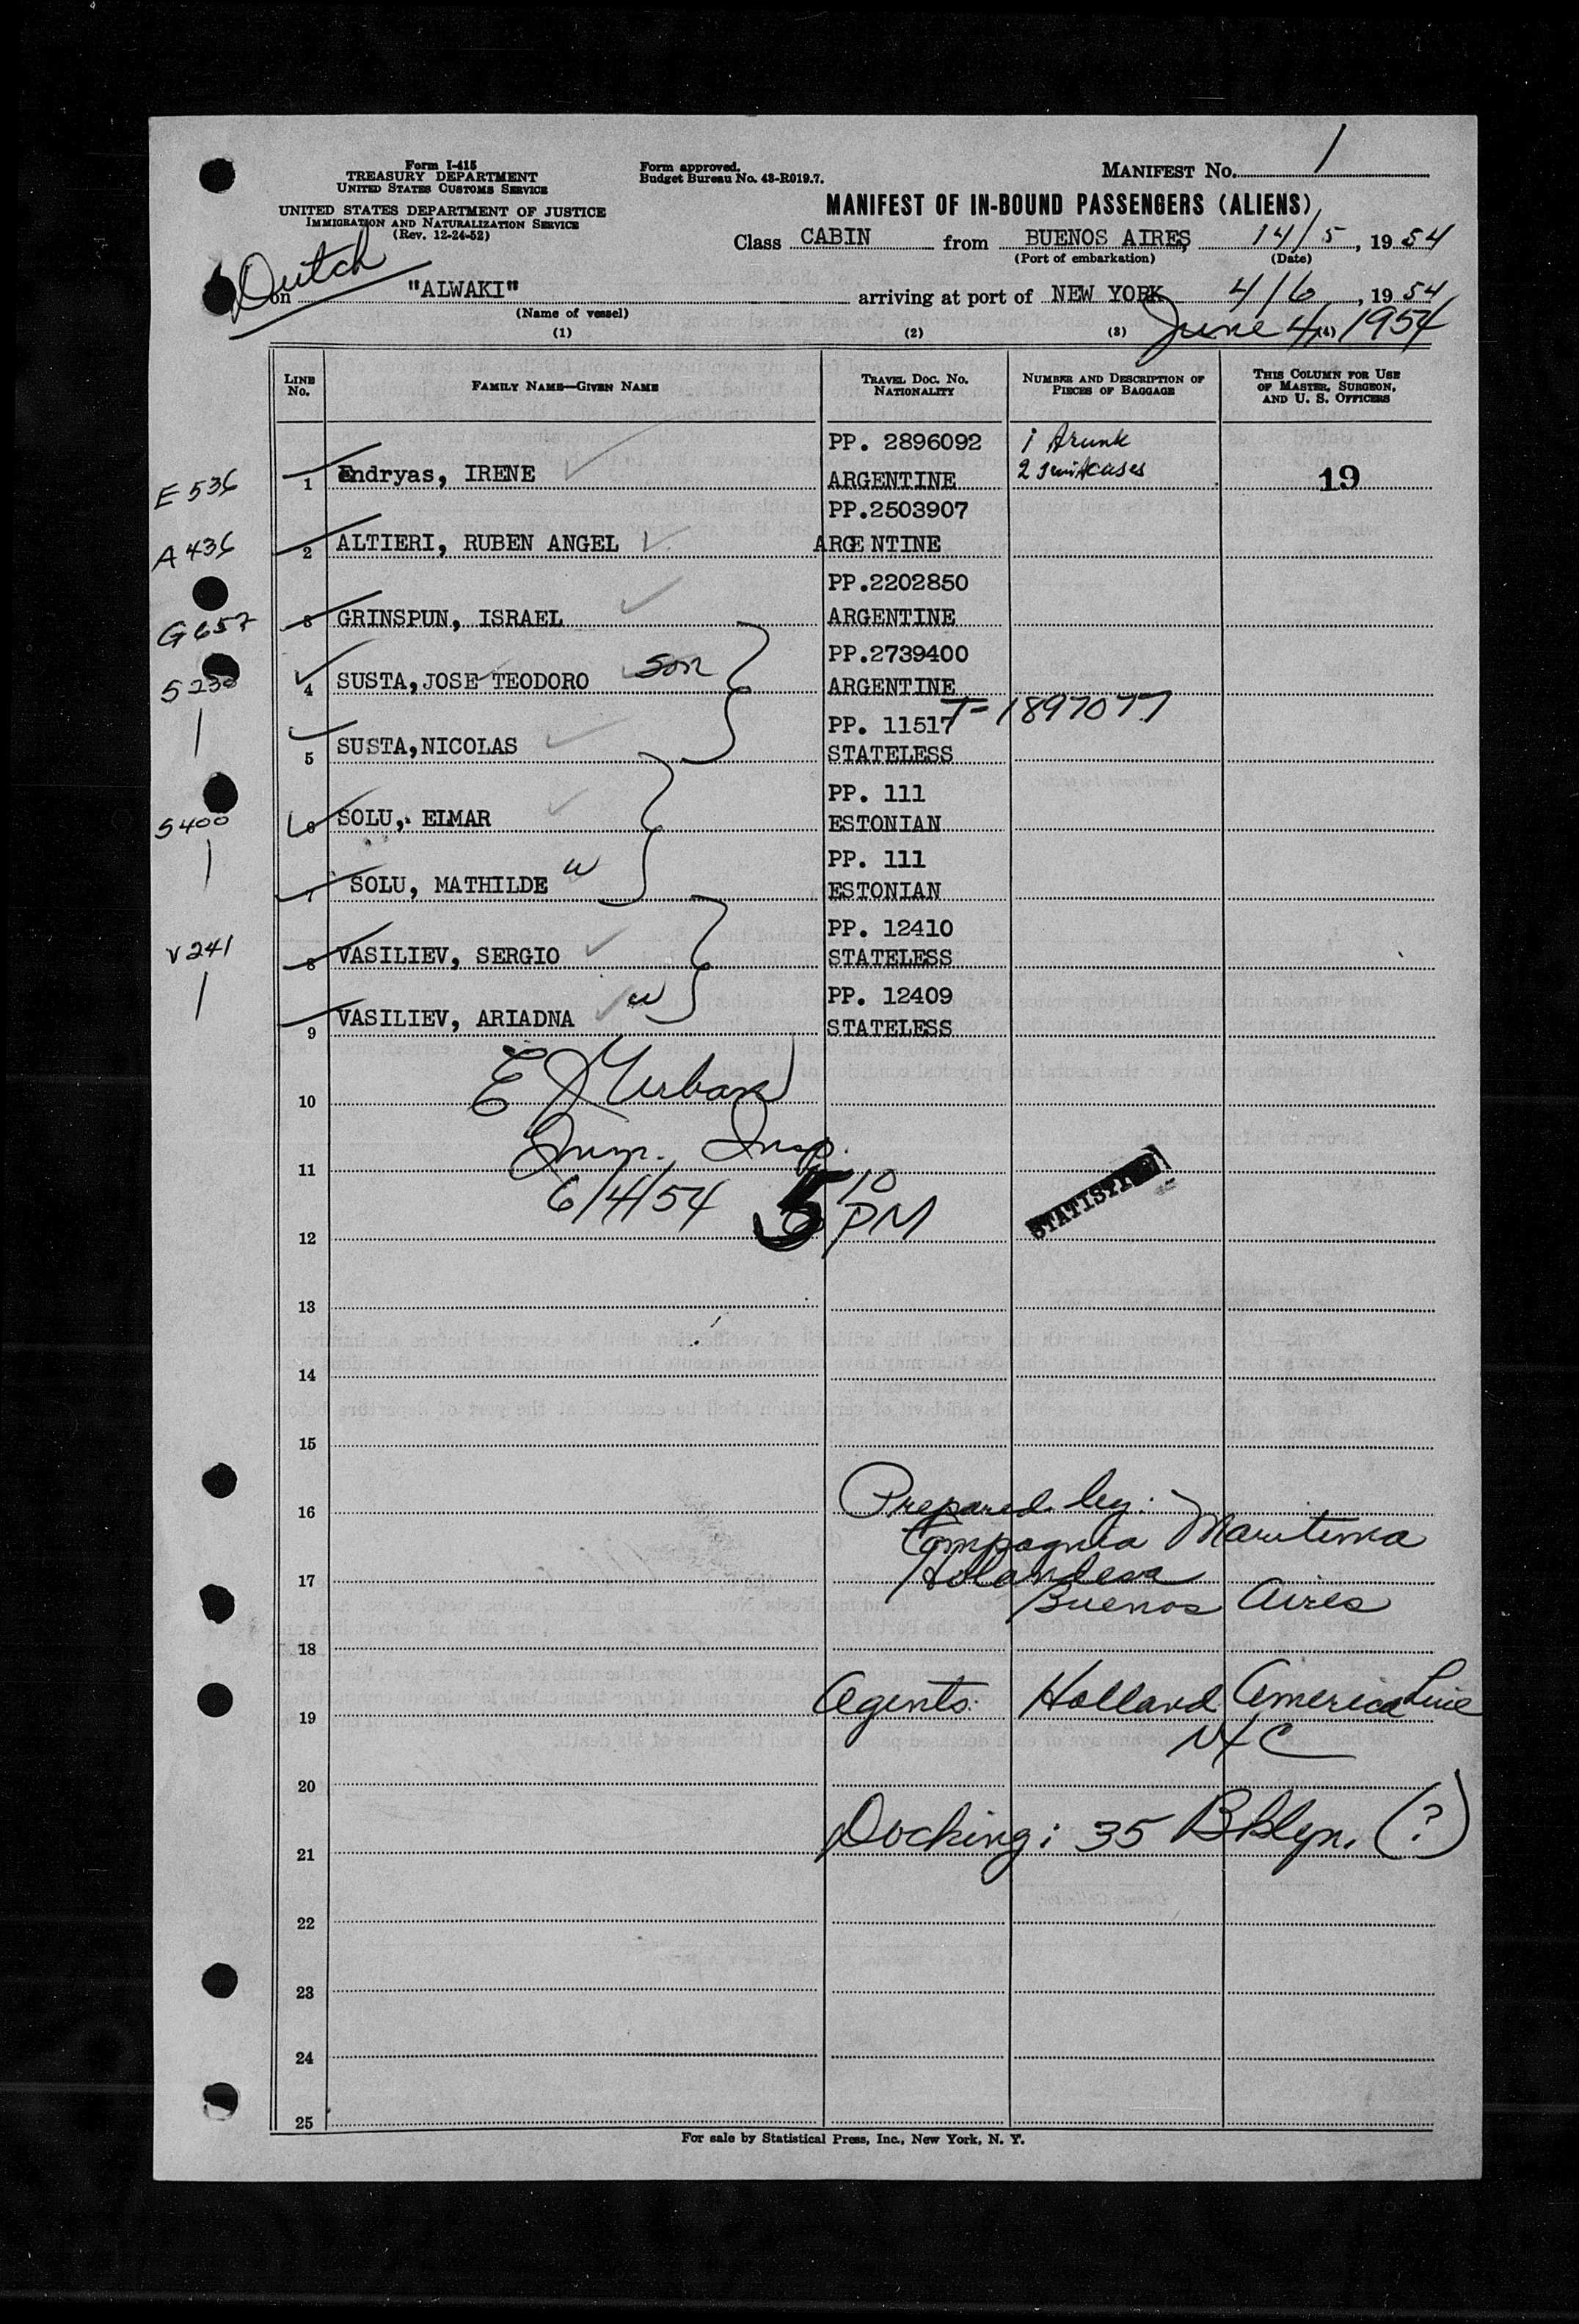 Form I-415
TREASURY DEPARTMENT
UNITED STATES CUSTOMS SERVICE
UNITED STATES DEPARTMENT OF JUSTICE
IMMIGRATION AND NATURALIZATION SERVICE
(Rev. 12-24-52)
Form approved.
Budget Bureau No. 43-R019.7.
MANIFEST No. 1
MANIFEST OF IN-BOUND PASSENGERS (ALIENS)
Class CABIN from BUENOS AIRES, 14/5, 1954
(Port of embarkation) (Date)
Dutch
on "ALWAKI" arriving at port of NEW YORK 4/6, 1954
(Name of vessel)
June 4, 1954
(1) (2) (3) (4)
LINE No. FAMILY NAME—GIVEN NAME TRAVEL DOC. NO. NATIONALITY NUMBER AND DESCRIPTION OF PIECES OF BAGGAGE THIS COLUMN FOR USE OF MASTER, SURGEON, AND U. S. OFFICERS
PP. 2896092 1 trunk
E 536 1 Endryas, IRENE ARGENTINE 2 suitcases 19
PP.2503907
A 436 2 ALTIERI, RUBEN ANGEL ARGE NTINE
PP.2202850
G 657 3 GRINSPUN, ISRAEL ARGENTINE
PP.2739400
5230 4 SUSTA,JOSE TEODORO son ARGENTINE
PP. 11517 T-1897077
5 SUSTA,NICOLAS STATELESS
PP. 111
5400 6 SOLU, ELMAR ESTONIAN
PP. 111
7 SOLU, MATHILDE w ESTONIAN
PP. 12410
V 241 8 VASILIEV, SERGIO STATELESS
PP. 12409
9 VASILIEV, ARIADNA w STATELESS
10 E J Urban
11 Imm. Insp.
6/4/54 5 10 PM
12
STATISTI
13
14
15
16 Prepared by:
Compagnia Maritima
17 Holandesa
Buenos Aires
18
19 Agents: Holland America Line
NYC
20
21 Docking: 35 Bklyn. (?)
22
23
24
25
For sale by Statistical Press, Inc., New York, N. Y.